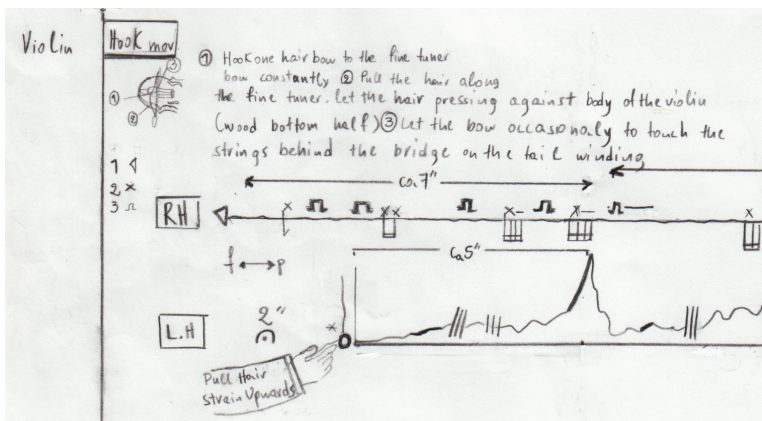 Violin
Hook mov
① Hook one hair bow to the fine tuner
bow constantly ② Pull the hair along
the fine tuner. let the hair pressing against body of the violin
(wood bottom half) ③ Let the bow occasionaly to touch the
strings behind the bridge on the tail winding
③
①
②
1
2 x
3
ca. 7"
RH
f ↔ p
Ca 5"
L.H
2"
Pull Hair
Strain Upwards